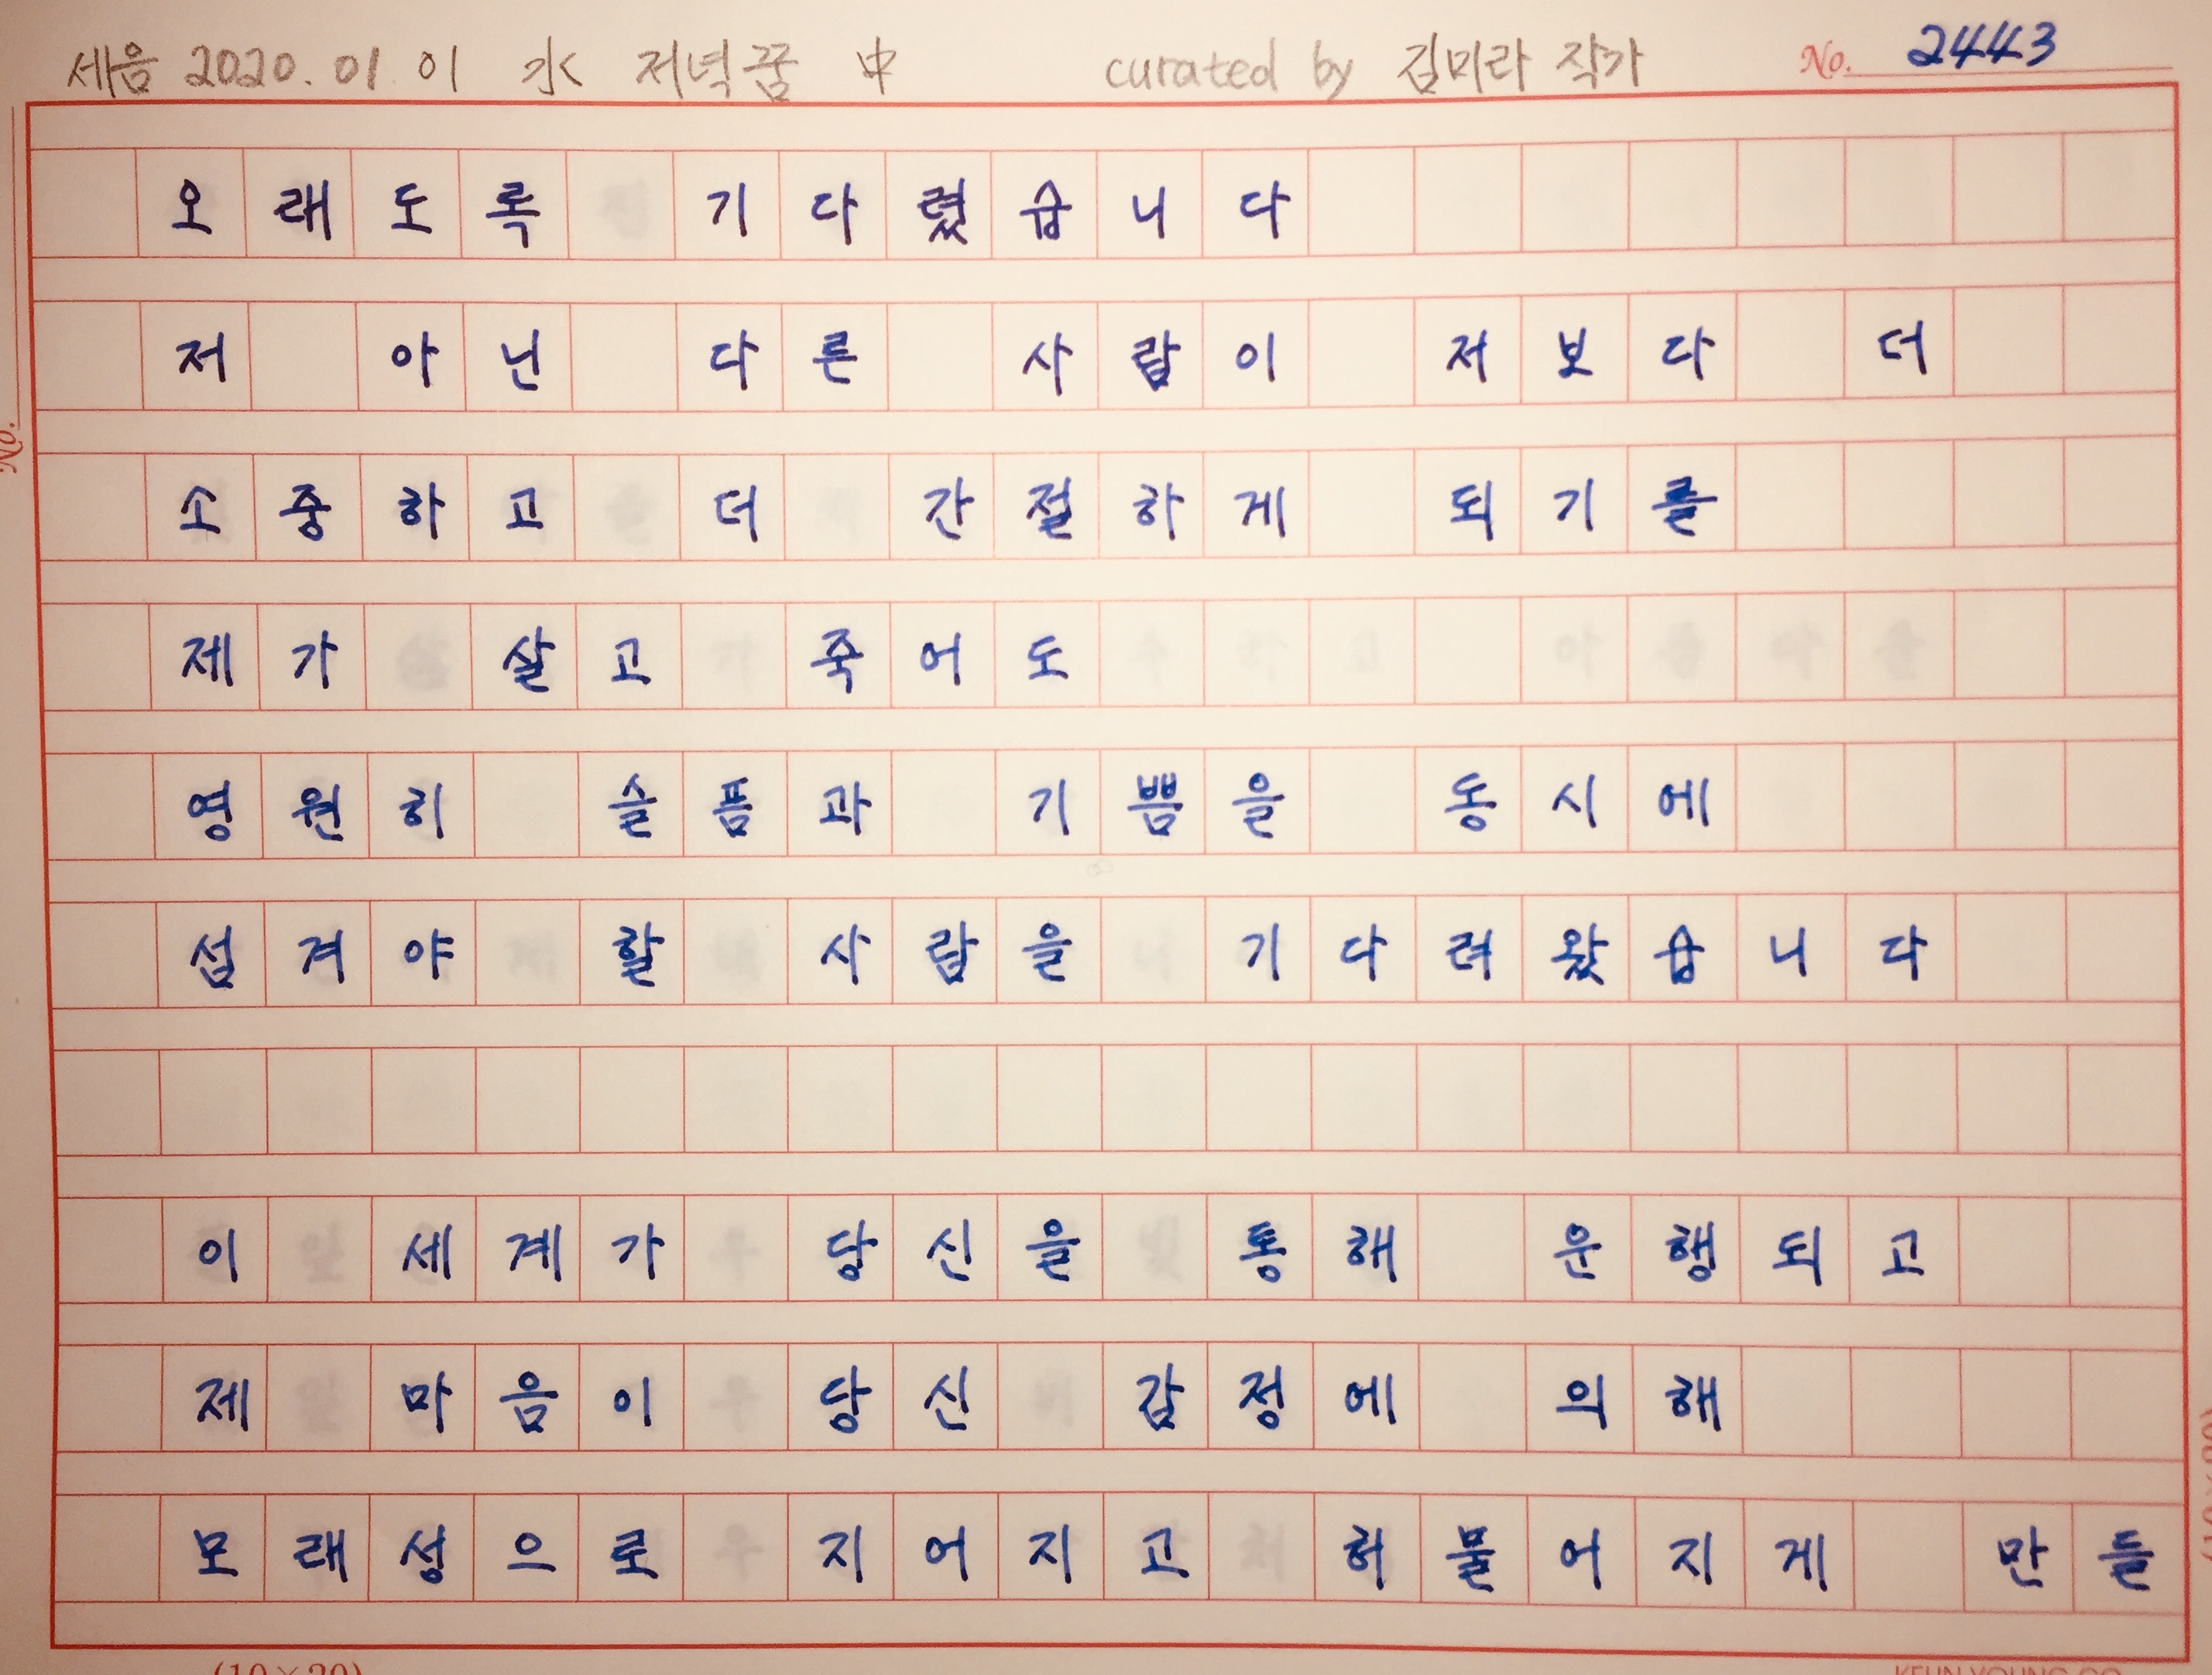 세음 2020. 01 01 水 저녁꿈 中 curated by 김미라 작가 No. 2443
오래도록 기다렸습니다
저 아닌 다른 사람이 저보다 더
소중하고 더 간절하게 되기를
제가 살고 죽어도
영원히 슬픔과 기쁨을 동시에
섬겨야 할 사람을 기다려왔습니다
이 세계가 당신을 통해 운행되고
제 마음이 당신 감정에 의해
모래성으로 지어지고 허물어지게 만들
No.
(10×20)